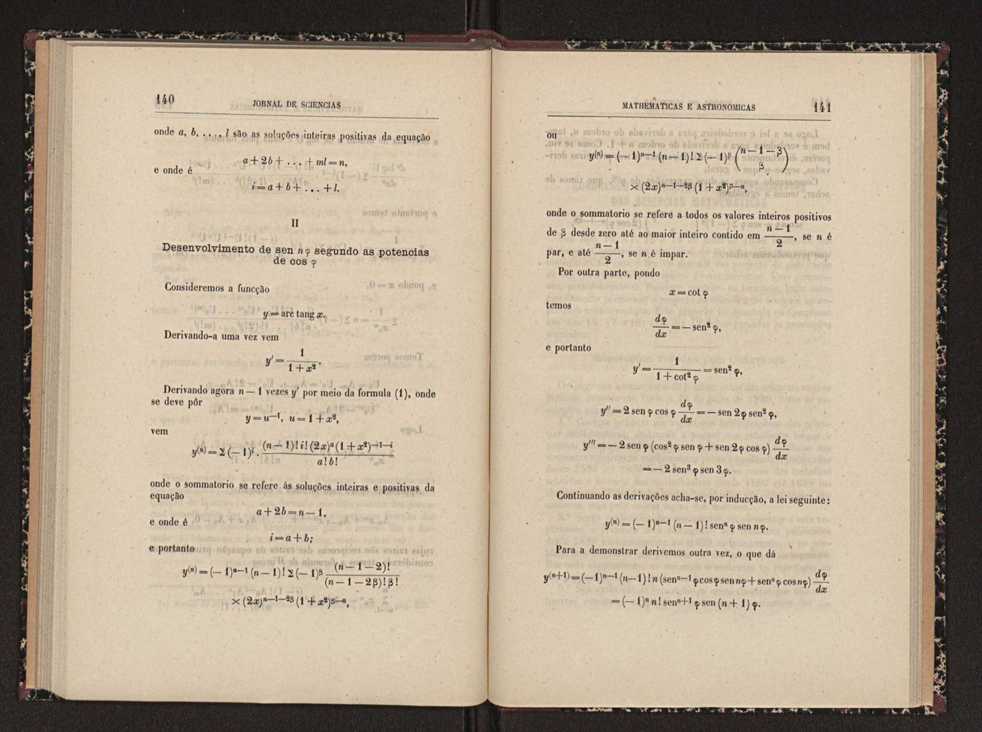 140 JORNAL DE SCIENCIAS
onde a, b, ..., l são as soluções inteiras positivas da equação
a + 2b + ... + ml = n,
e onde é
i = a + b + ... + l.
II
Desenvolvimento de sen nφ segundo as potencias
de cos φ
Consideremos a funcção
y = arc tang x.
Derivando-a uma vez vem
y′ = 1/(1 + x²).
Derivando agora n — 1 vezes y′ por meio da formula (1), onde
se deve pôr
y = u⁻¹, u = 1 + x²,
vem
y⁽ⁿ⁾ = Σ (— 1)ⁱ . (n — 1)! i! (2x)ᵃ (1 + x²)⁻¹⁻ⁱ / a! b!
onde o sommatorio se refere ás soluções inteiras e positivas da
equação
a + 2b = n — 1,
e onde é
i = a + b;
e portanto
y⁽ⁿ⁾ = (— 1)ⁿ⁻¹ (n — 1)! Σ (— 1)^β (n — 1 — 2)! / (n — 1 — 2β)! β!
× (2x)^(n—1—2β) (1 + x²)^(β—n),
MATHEMATICAS E ASTRONOMICAS 141
ou
y⁽ⁿ⁾ = (— 1)ⁿ⁻¹ (n — 1)! Σ (— 1)^β (n — 1 — β / β)
× (2x)^(n—1—2β) (1 + x²)^(β—n),
onde o sommatorio se refere a todos os valores inteiros positivos
de β desde zero até ao maior inteiro contido em (n — 1)/2, se n é
par, e até (n — 1)/2, se n é impar.
Por outra parte, pondo
x = cot φ
temos
dφ/dx = — sen² φ,
e portanto
y′ = 1/(1 + cot² φ) = sen² φ,
y″ = 2 sen φ cos φ dφ/dx = — sen 2φ sen² φ,
y‴ = — 2 sen φ (cos² φ sen φ + sen 2φ cos φ) dφ/dx
= — 2 sen³ φ sen 3φ.
Continuando as derivações acha-se, por inducção, a lei seguinte:
y⁽ⁿ⁾ = (— 1)ⁿ⁻¹ (n — 1)! senⁿ φ sen nφ.
Para a demonstrar derivemos outra vez, o que dá
y⁽ⁿ⁺¹⁾ = (—1)ⁿ⁻¹ (n—1)! n (senⁿ⁻¹ φ cos φ sen nφ + senⁿ φ cos nφ) dφ/dx
= (— 1)ⁿ n! senⁿ⁺¹ φ sen (n + 1) φ.